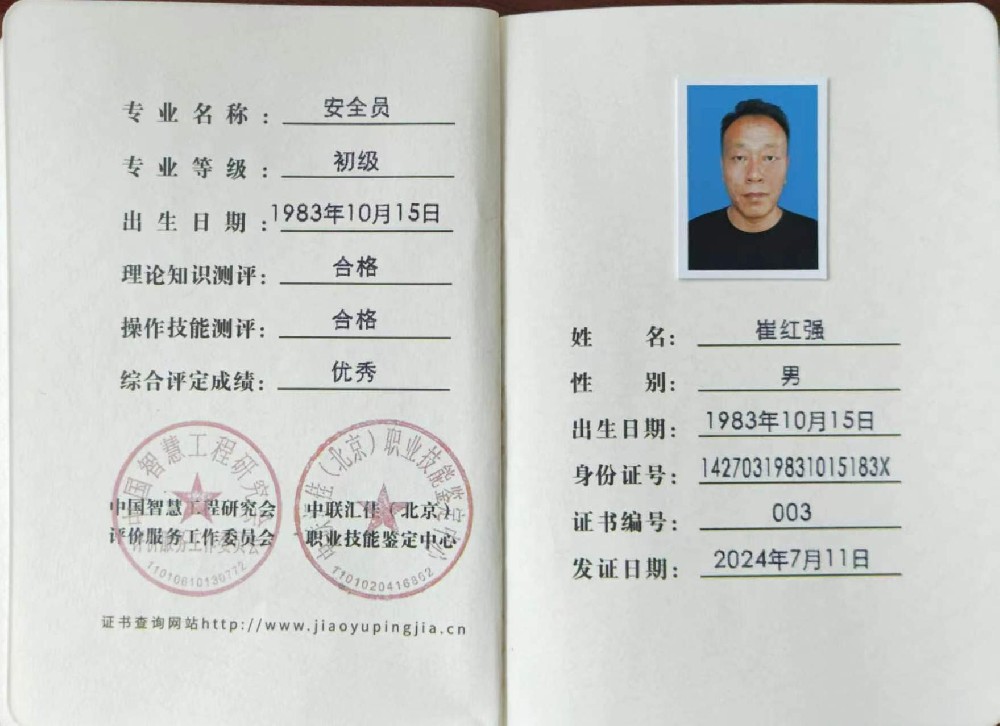 专业名称：安全员
专业等级：初级
出生日期：1983年10月15日
理论知识测评：合格
操作技能测评：合格
综合评定成绩：优秀
中国智慧工程研究会
评价服务工作委员会
中国智慧工程研究会
评价服务工作委员会
中联汇佳（北京）职业技能鉴定中心
中联汇佳（北京）
职业技能鉴定中心
1101020416862
证书查询网站http://www.jiaoyupingjia.cn
姓名：崔红强
性别：男
出生日期：1983年10月15日
身份证号：14270319831015183X
证书编号：003
发证日期：2024年7月11日